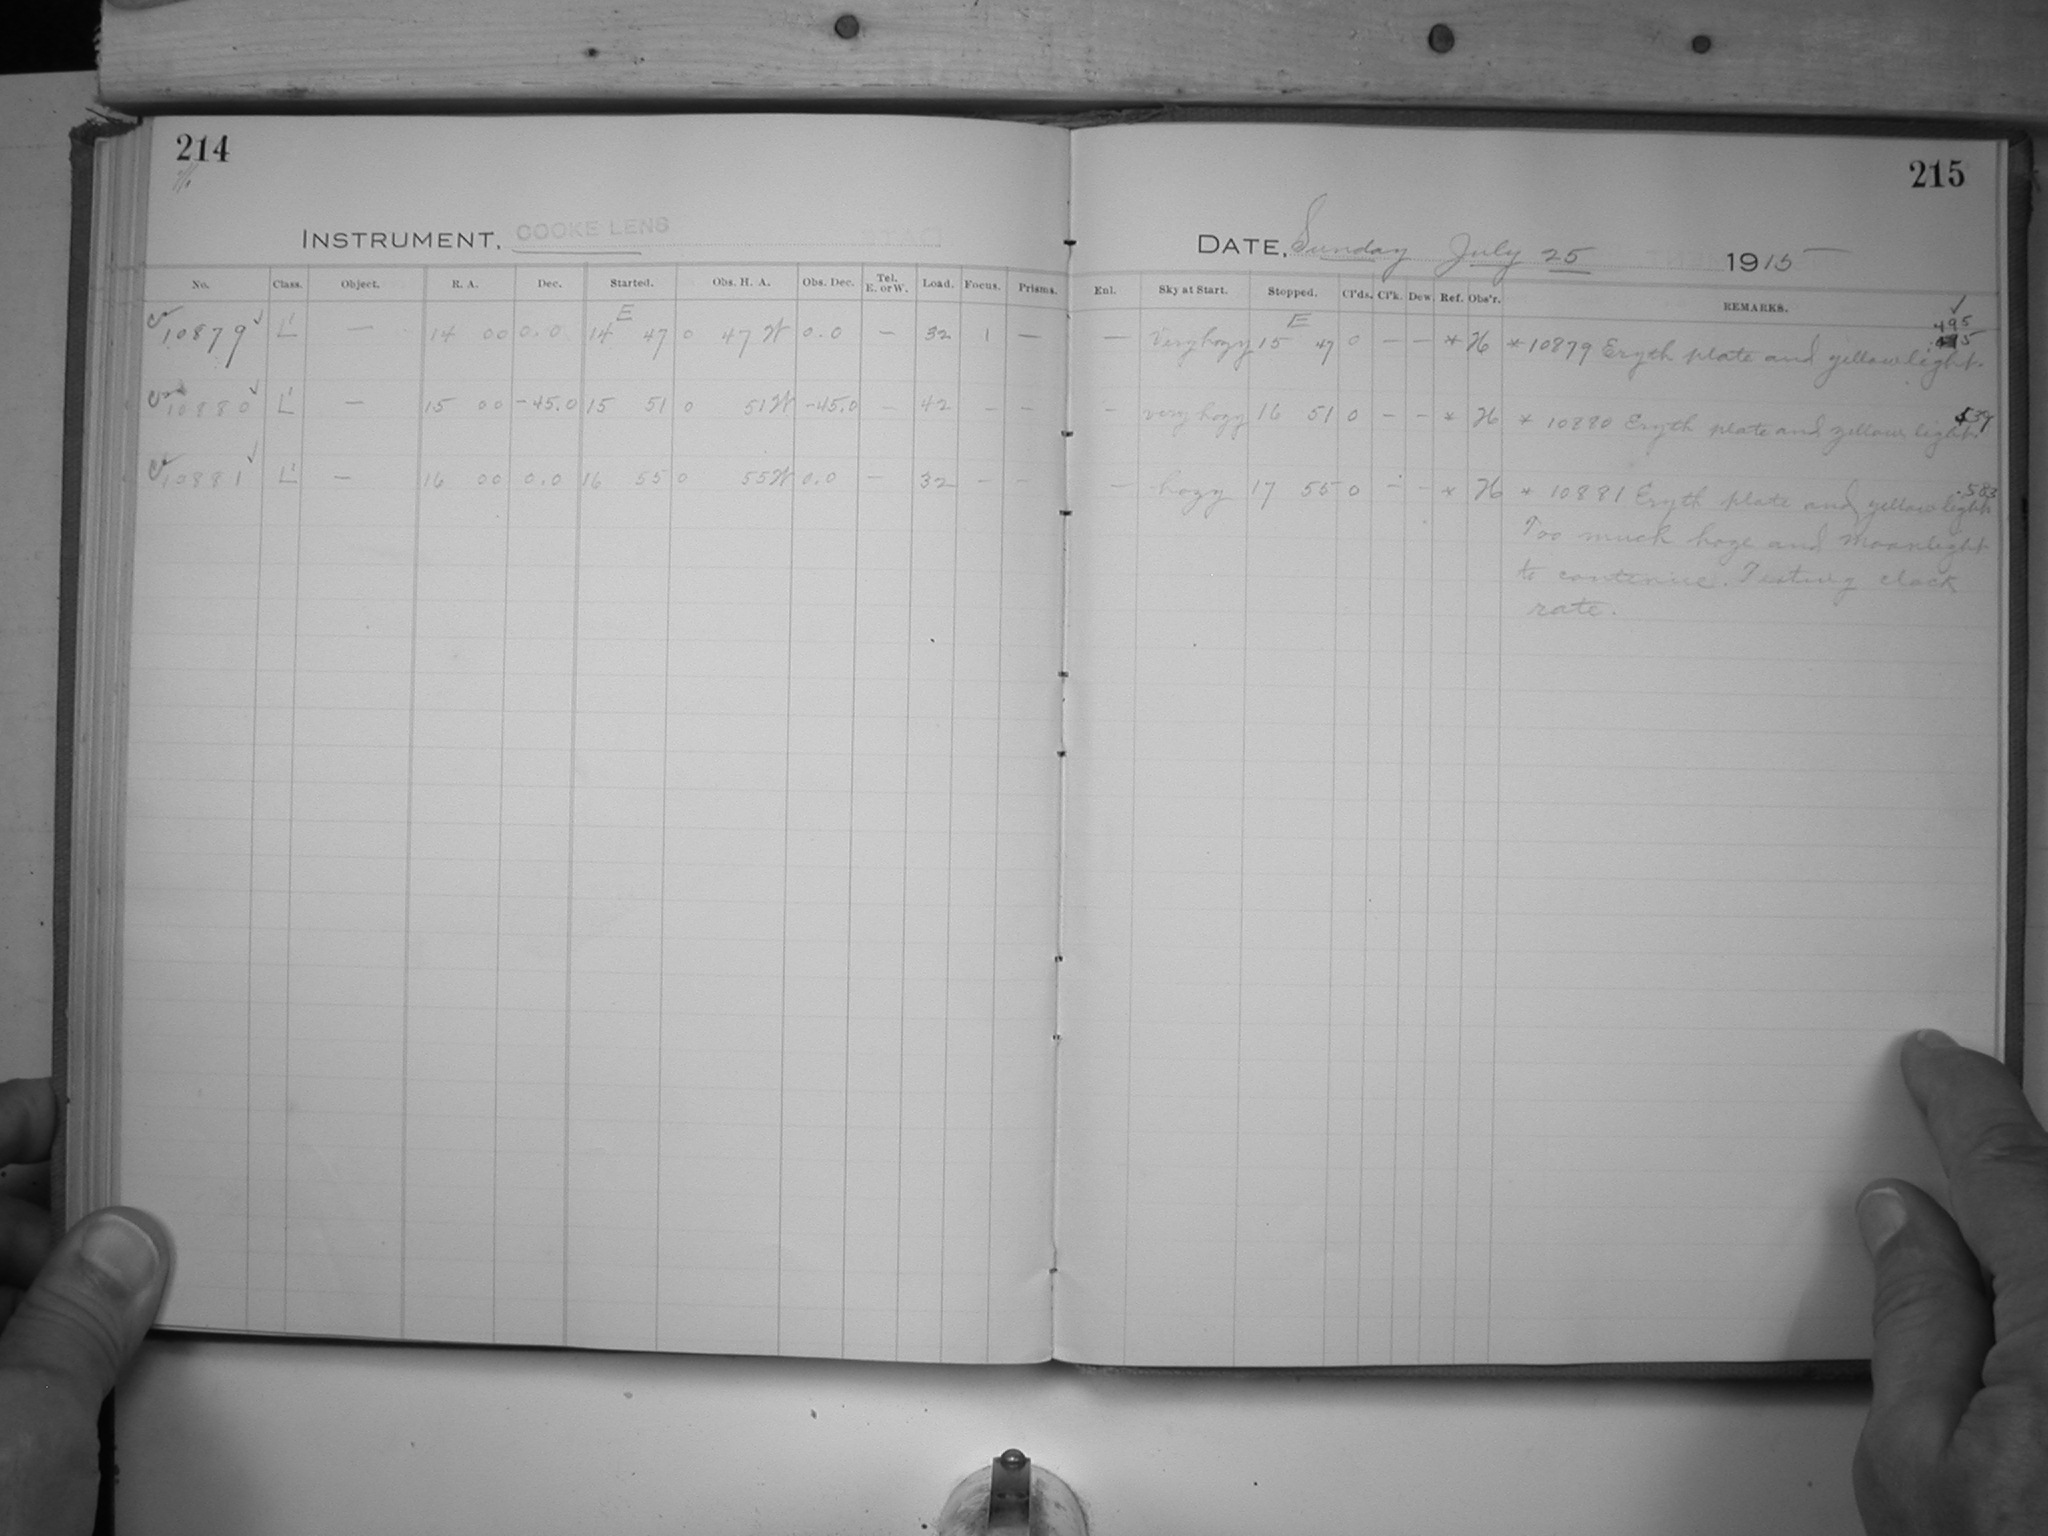 214
215
INSTRUMENT, COOKE LENS
DATE, Sunday July 25 1915
No. Class. Object. R. A. Dec. Started. Obs. H. A. Obs. Dec. Tel. E. or W. Load. Focus. Prisms. Enl. Sky at Start. Stopped. Cl'ds. Cl'k. Dew. Ref. Obs'r. REMARKS.
E E 495
10879 L' — 14 00 0.0 14 47 0 47 W 0.0 — 32 1 — — Very hazy 15 47 0 — — * H * 10879 Eryth plate and yellow light.
10880 L' — 15 00 -45.0 15 51 0 51 W -45.0 — 42 - - - very hazy 16 51 0 - - * H * 10880 Eryth plate and yellow light.
10881 L' — 16 00 0.0 16 55 0 55 W 0.0 — 32 - - — hazy 17 55 0 - - * H * 10881 Eryth plate and yellow light .583
Too much haze and moonlight
to continue. Testing clock
rate.